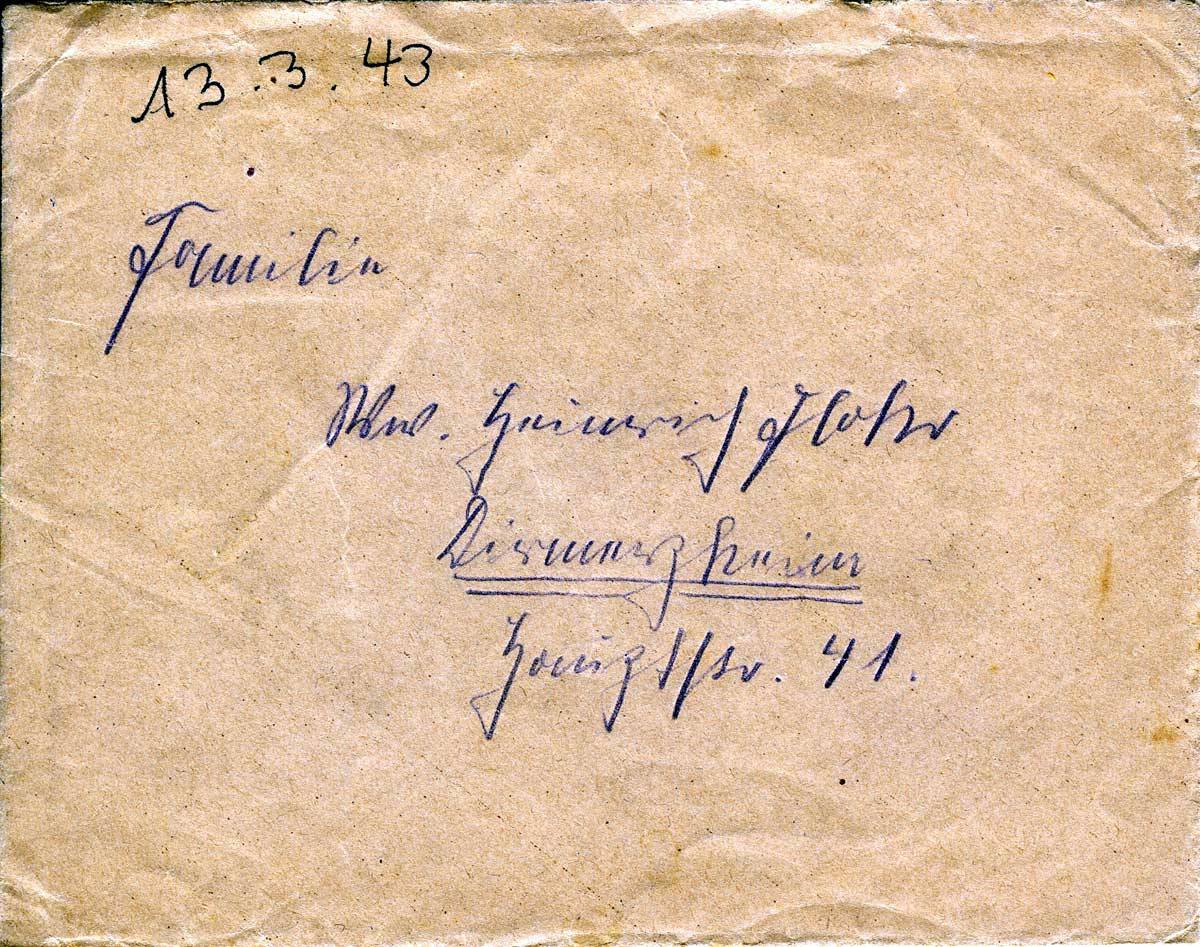 13.3.43
Familie
Ww. Heinrich Flohr
Dirmerzheim
Hauptstr. 41.